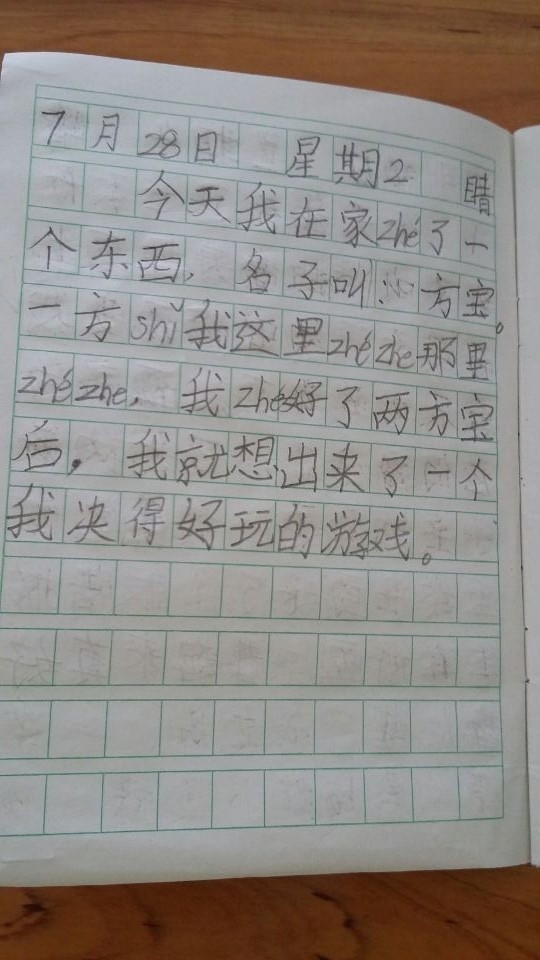 7月28日 星期2 晴
今天我在家zhé了一
个东西，名子叫：方宝。
一方shǐ我这里zhézhe那里
zhézhe，我zhé好了两方宝
后，我就想出来了一个
我决得好玩的游戏。